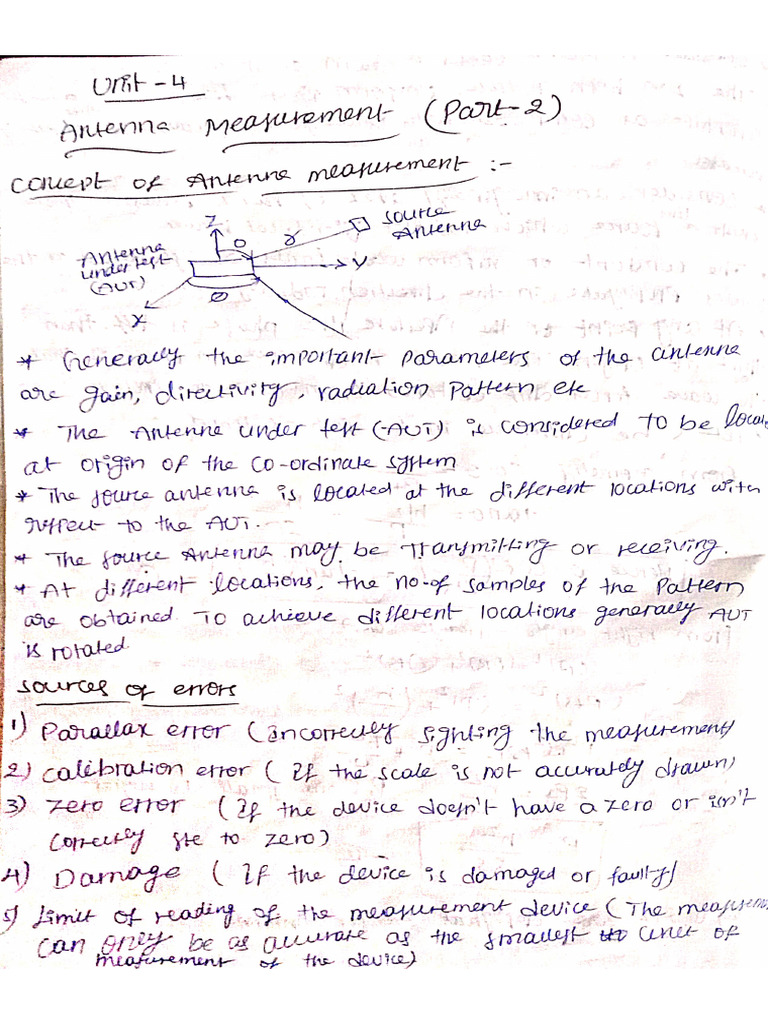 Unit-4
Antenna Measurement (Part-2)
Concept of Antenna measurement :-
Z
Source
Antenna
θ
r
Antenna
under test
(AUT)
Y
Ø
X
* Generally the important parameters of the antenna
are gain, directivity, radiation Pattern etc
* The Antenna under test (AUT) is considered to be locat
at origin of the co-ordinate system
* The source antenna is located at the different locations with
respect to the AUT.
* The source Antenna may be Transmitting or receiving.
* At different locations, the no-of samples of the Pattern
are obtained To achieve different locations generally AUT
is rotated
Sources of errors
1) Parallax error (incorrectly sighting the measurement
2) calibration error ( if the scale is not accurately drawn)
3) Zero error (If the device doesn't have a zero or isn't
correctly ste to zero)
4) Damage ( If the device is damaged or faulty)
5) Limit of reading of the measurement device (The measurem
can only be as accurate as the smallest unit of
measurement of the device)